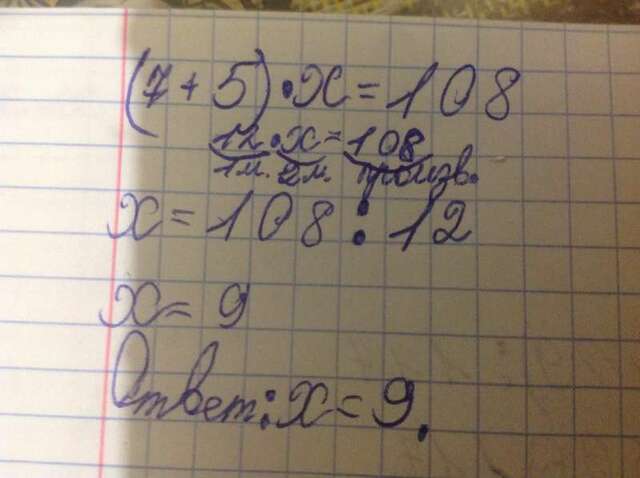 (7 + 5) · x = 108
12 · x = 108
1м. 2м. произв.
x = 108 : 12
x = 9
Ответ: x = 9.